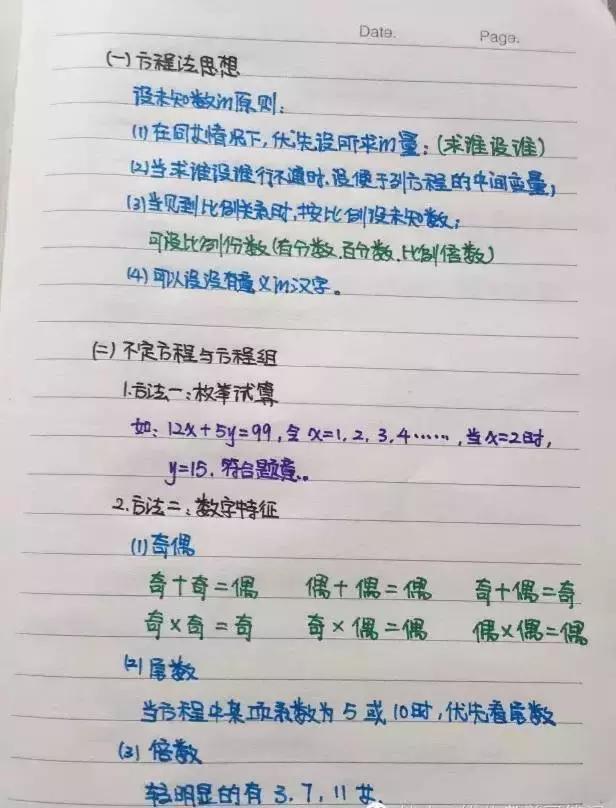 Date.
Page.
(一)方程法思想
设未知数的原则:
(1)在同女情况下,优先设所求的量;(求谁设谁)
(2)当求谁设谁行不通时,设便于列方程的中间变量;
(3)当见到比例关系时,按比例设未知数;
可设比例份数(有分数、百分数、比例倍数)
(4)可以设没有意义的汉字。
(二)不定方程与方程组
1.方法一:枚举试算
如:12x+5y=99,令x=1,2,3,4……,当x=2时,
y=15,符合题意。
2.方法二:数字特征
(1)奇偶
奇+奇=偶 偶+偶=偶 奇+偶=奇
奇×奇=奇 奇×偶=偶 偶×偶=偶
(2)尾数
当方程中某项系数为5或10时,优先看尾数
(3)倍数
较明显的有3,7,11女